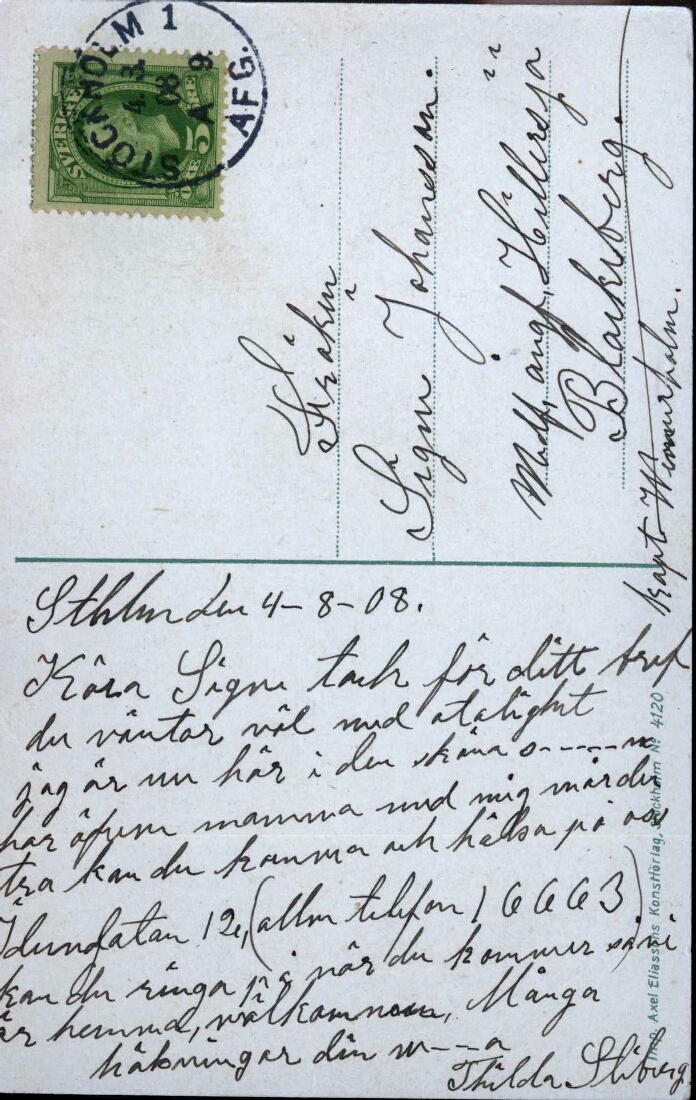 STOCKHOLM 1
4.3.
08
A 9.
AFG.
SVERIGE
5
ÖRE
Fröken
Signe Johansson.
Medf. ångf. Hillersjö
Blackeberg.
Kapt. Wennerholm.
Sthlm den 4-8-08.
Kära Signe tack för ditt bref
du väntar väl med otålighet
jag är nu här i den sköna s-----n
har äfven mamma med mig mår du
tra kan du komma och hälsa på oss
Idungatan 12, (allm telefon 16663)
kan du ringa på när du kommer så vi
är hemma, välkommen, Många
hälsningar din w---a
Thilda
Imp. Axel Eliassons Konstförlag, Stockholm No 4120